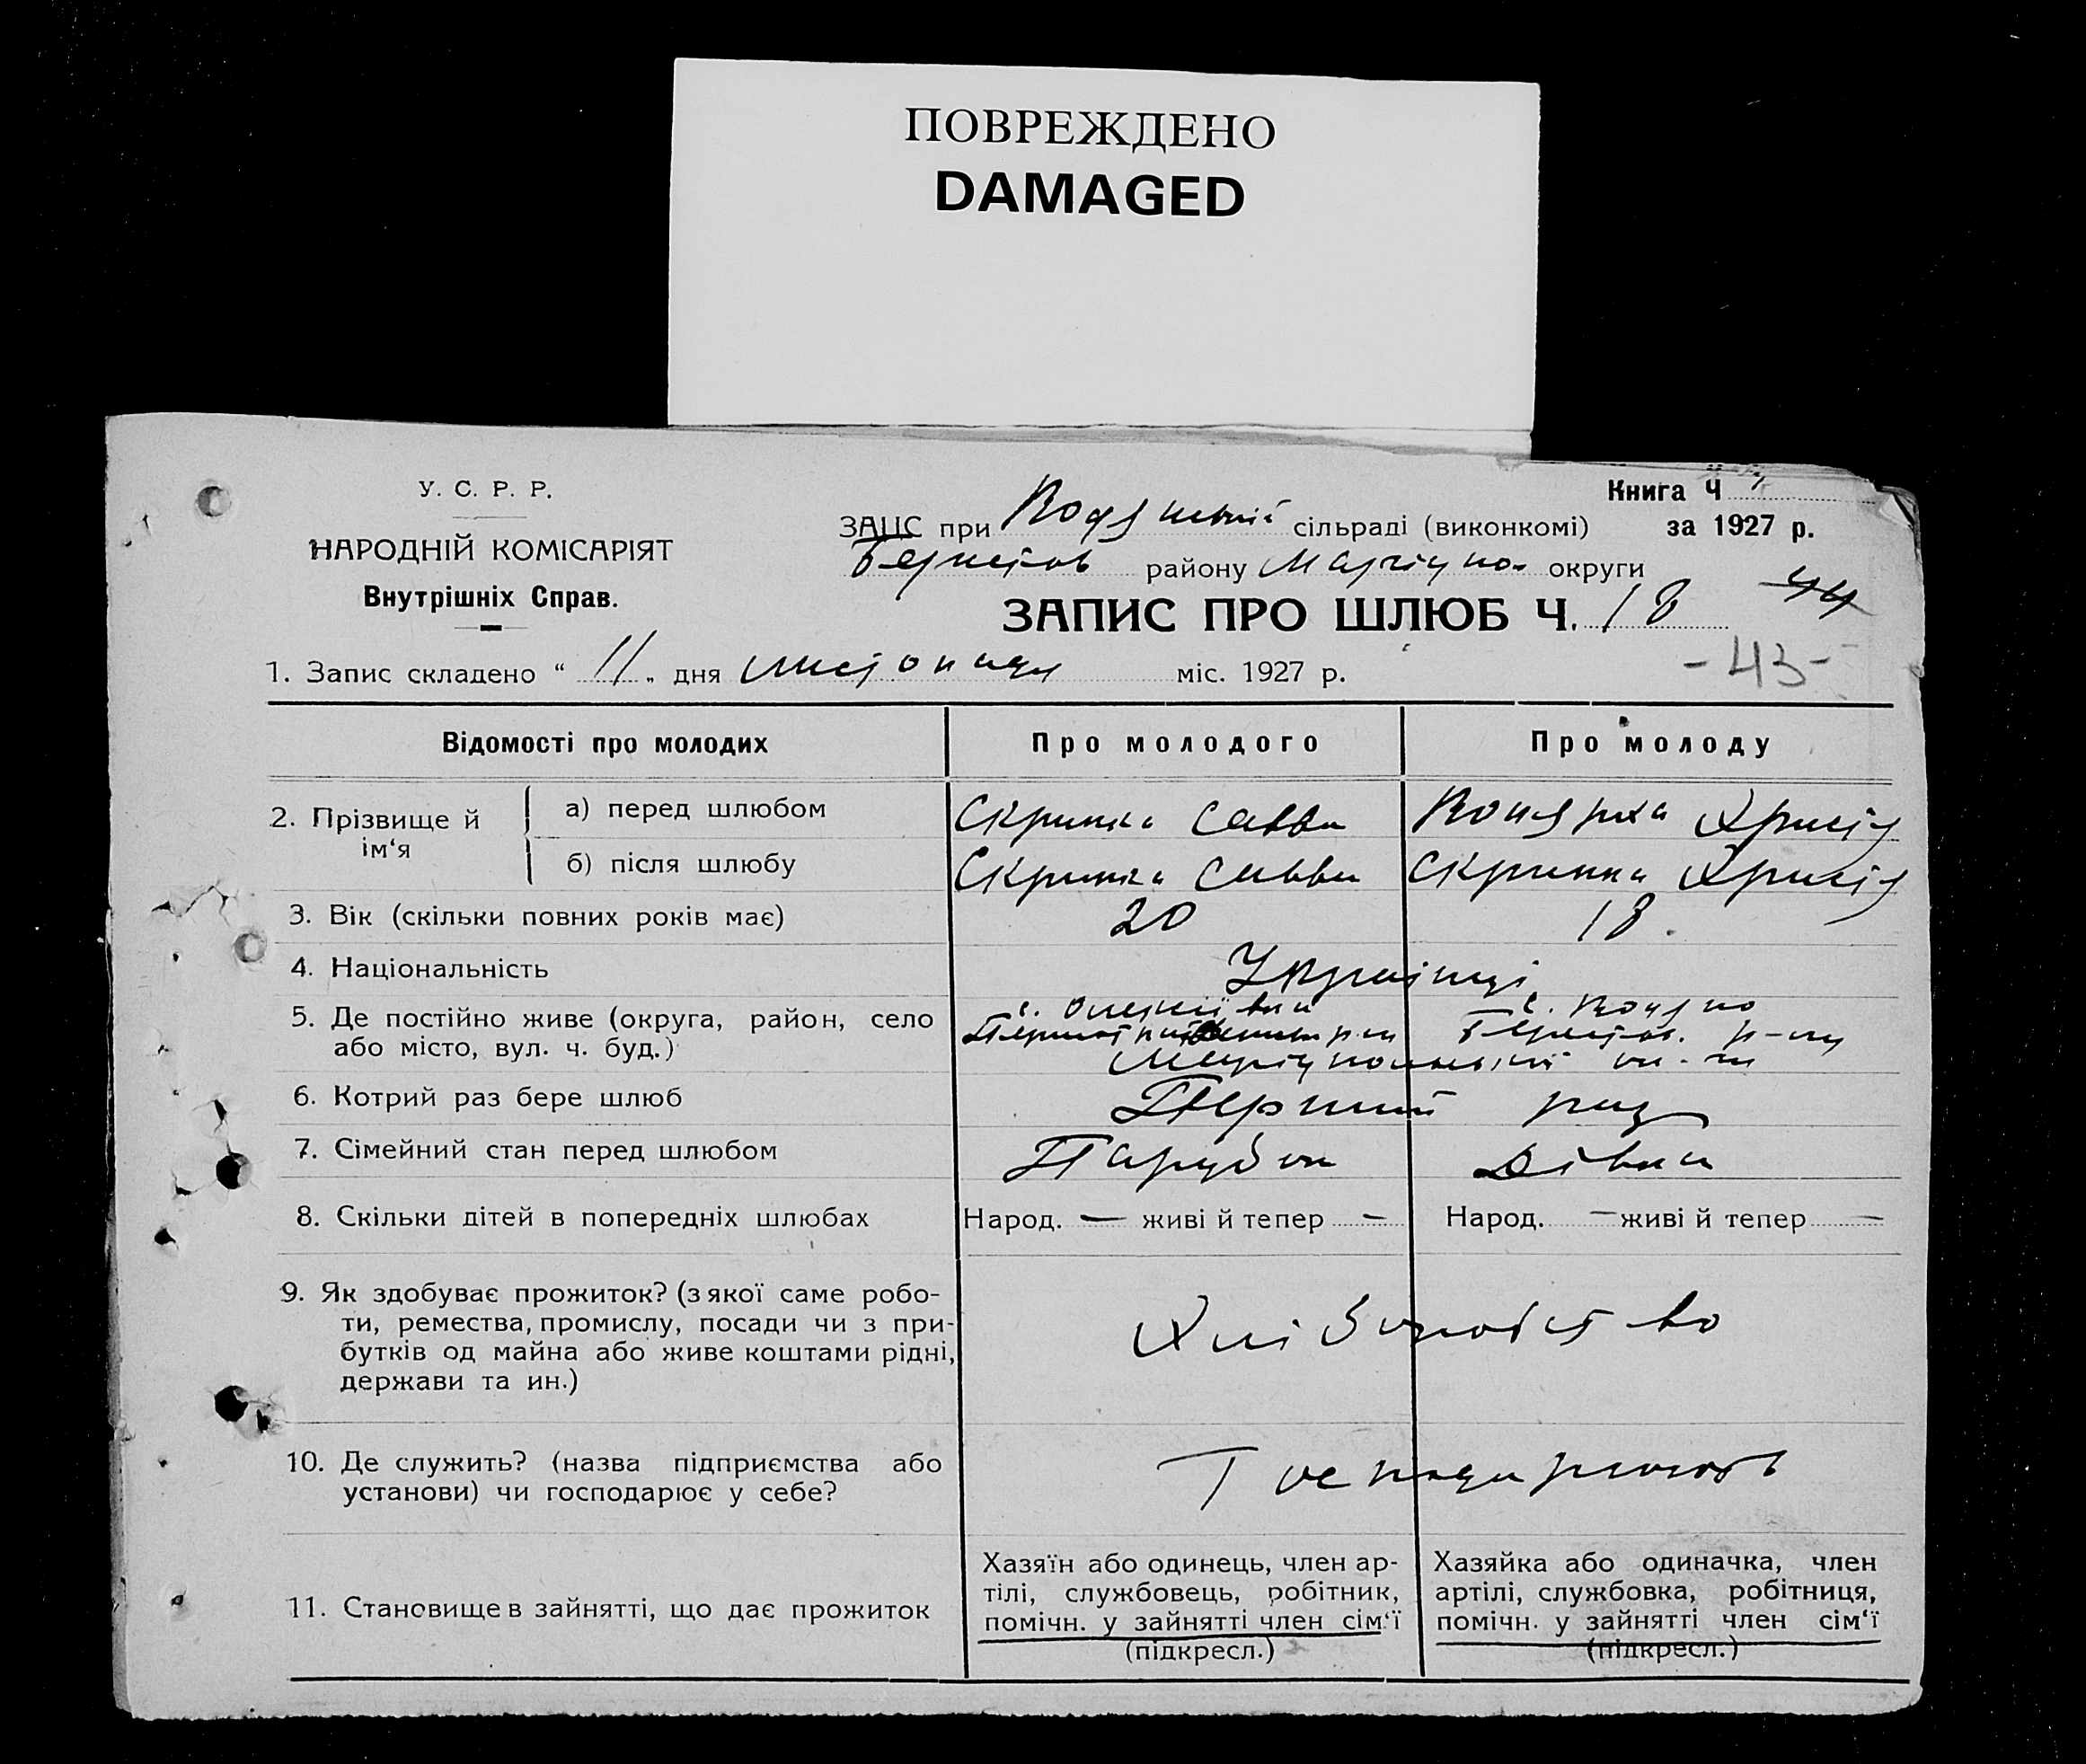 ПОВРЕЖДЕНО
DAMAGED
У. С. Р. Р.
НАРОДНІЙ КОМІСАРІЯТ
Внутрішніх Справ.
Книга Ч
ЗАЦС при сільраді (виконкомі)
за 1927 р.
Берестов району Маріупол округи
ЗАПИС ПРО ШЛЮБ Ч. 18
44
-43-
1. Запис складено “ 11 „ дня листопада міс. 1927 р.
Відомості про молодих
Про молодого
Про молоду
2. Прізвище й ім‘я
а) перед шлюбом
Скрипка Савва
Христя
б) після шлюбу
Скрипка Савва
Скрипка Христя
3. Вік (скільки повних років має)
20
18.
4. Національність
Українці
5. Де постійно живе (округа, район, село
або місто, вул. ч. буд.)
с.
с.
Берестов. р-ну
Маріупольської ок-ги
6. Котрий раз бере шлюб
Перший раз
7. Сімейний стан перед шлюбом
Парубок
Дівка
8. Скільки дітей в попередніх шлюбах
Народ. — живі й тепер —
Народ. — живі й тепер —
9. Як здобуває прожиток? (з якої саме робо-
ти, ремества, промислу, посади чи з при-
бутків од майна або живе коштами рідні,
держави та ин.)
Хліборобство
10. Де служить? (назва підприємства або
установи) чи господарює у себе?
Господарюють
11. Становище в зайнятті, що дає прожиток
Хазяїн або одинець, член ар-
тілі, службовець, робітник,
помічн. у зайнятті член сім‘ї
(підкресл.)
Хазяйка або одиначка, член
артілі, службовка, робітниця,
помічн. у зайнятті член сім‘ї
(підкресл.)